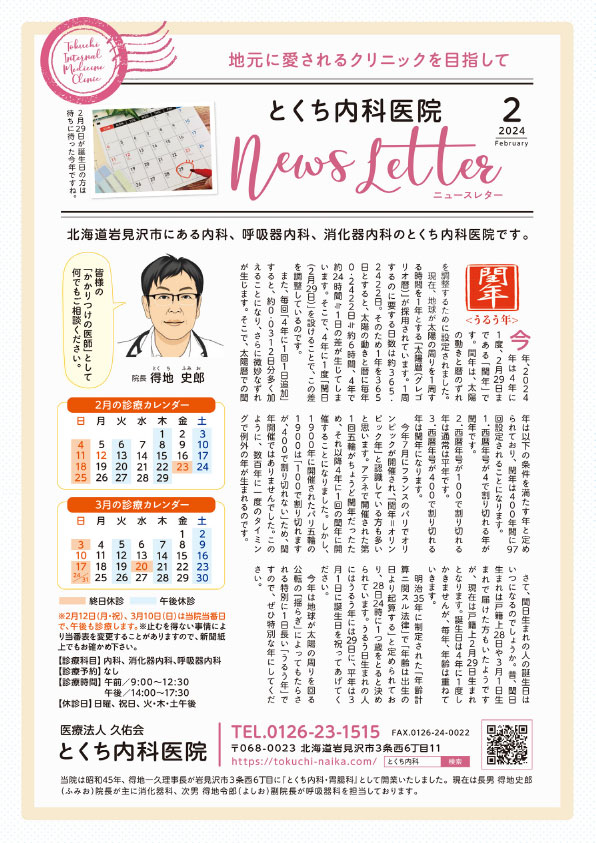 Tokuchi
Internal
Medicine
Clinic
地元に愛されるクリニックを目指して
2月29日が誕生日の方は
待ちに待った今年ですね。
とくち内科医院
2
2024
February
News Letter
ニュースレター
北海道岩見沢市にある内科、呼吸器内科、消化器内科のとくち内科医院です。
皆様の
「かかりつけの医師」として
何でもご相談ください。
院長 得地 史郎
とくち ふみお
閏年
<うるう年>
今年、2024
年は4年に
1度、2月29日ま
である「閏年」で
す。閏年は、太陽
の動きと暦のずれ
を調整するために設定されました。
現在、地球が太陽の周りを1周す
る時間を1年とする「太陽暦(グレゴ
リオ暦)」が採用されています。1周
するのに要する日数は約365.
2422日。そのため1年を365
日とすると、太陽の動きと暦に毎年
0.2422日≒約6時間、4年で
約24時間≒1日の差が生じてしま
います。そこで、4年に1度「閏日
(2月29日)」を設けることで、この差
を調整しているのです。
また、毎回「4年に1回1日追加」
すると、約0.0312日分多く加
えることになり、さらに微妙なずれ
が生じます。そこで、太陽暦での閏
年は以下の条件を満たす年と定め
られており、閏年は400年間に97
回設定されることになります。
1.西暦年号が4で割り切れる年が
閏年です。
2.西暦年号が100で割り切れる
年は通常は平年です。
3.西暦年号が400で割り切れる
年は閏年になります。
今年7月にフランスのパリでオリ
ンピックが開催され、「閏年＝オリン
ピック年」と認識している方も多い
と思います。アテネで開催された第
1回五輪がちょうど閏年だったた
め、それ以降4年に1回の閏年に開
催することになりました。しかし、
1900年に開催されたパリ五輪の
1900は「100で割り切れます
が、400で割り切れない」ため、閏
年開催ではありませんでした。この
ように、数百年に一度のタイミン
グで例外の年が生まれるのです。
さて、閏日生まれの人の誕生日は
いつになるのでしょうか。昔、閏日
生まれは戸籍上28日や3月1日生
まれで届けた方もいたようです
が、現在は戸籍上2月29日生まれ
となります。誕生日は4年に1度し
かきませんが、毎年、年齢は重ねて
いきます。
明治35年に制定された「年齢計
算ニ関スル法律」で「年齢は出生の
日より起算する」と定められてお
り、28日24時に1つ歳をとると決め
られています。うるう日生まれの人
にはうるう年には29日に、平年は3
月1日に誕生日を祝ってあげてく
ださい。
今年は地球が太陽の周りを回る
公転の「揺らぎ」によってもたらさ
れる特別に1日長い「うるう年」で
すので、ぜひ特別な年にしてくだ
さい。
2月の診療カレンダー
日 月 火 水 木 金 土
1 2 3
4 5 6 7 8 9 10
11 12 13 14 15 16 17
18 19 20 21 22 23 24
25 26 27 28 29
3月の診療カレンダー
日 月 火 水 木 金 土
1 2
3 4 5 6 7 8 9
10 11 12 13 14 15 16
17 18 19 20 21 22 23
24/31 25 26 27 28 29 30
終日休診 午後休診
※2月12日(月・祝)、3月10日(日)は当院当番日
で、午後も診療します。※止むを得ない事情によ
り当番表を変更することがありますので、新聞紙
上でもお確かめ下さい。
【診療科目】内科、消化器内科、呼吸器内科
【診療予約】なし
【診療時間】午前／9:00〜12:30
午後／14:00〜17:30
【休診日】日曜、祝日、火・木・土午後
医療法人 久佑会
とくち内科医院
TEL.0126-23-1515 FAX.0126-24-0022
〒068-0023 北海道岩見沢市3条西6丁目11
https://tokuchi-naika.com/ とくち内科 検索
当院は昭和45年、得地一久理事長が岩見沢市3条西6丁目に『とくち内科・胃腸科』として開業いたしました。現在は長男 得地史郎
(ふみお)院長が主に消化器科、次男 得地令郎(よしお)副院長が呼吸器科を担当しております。